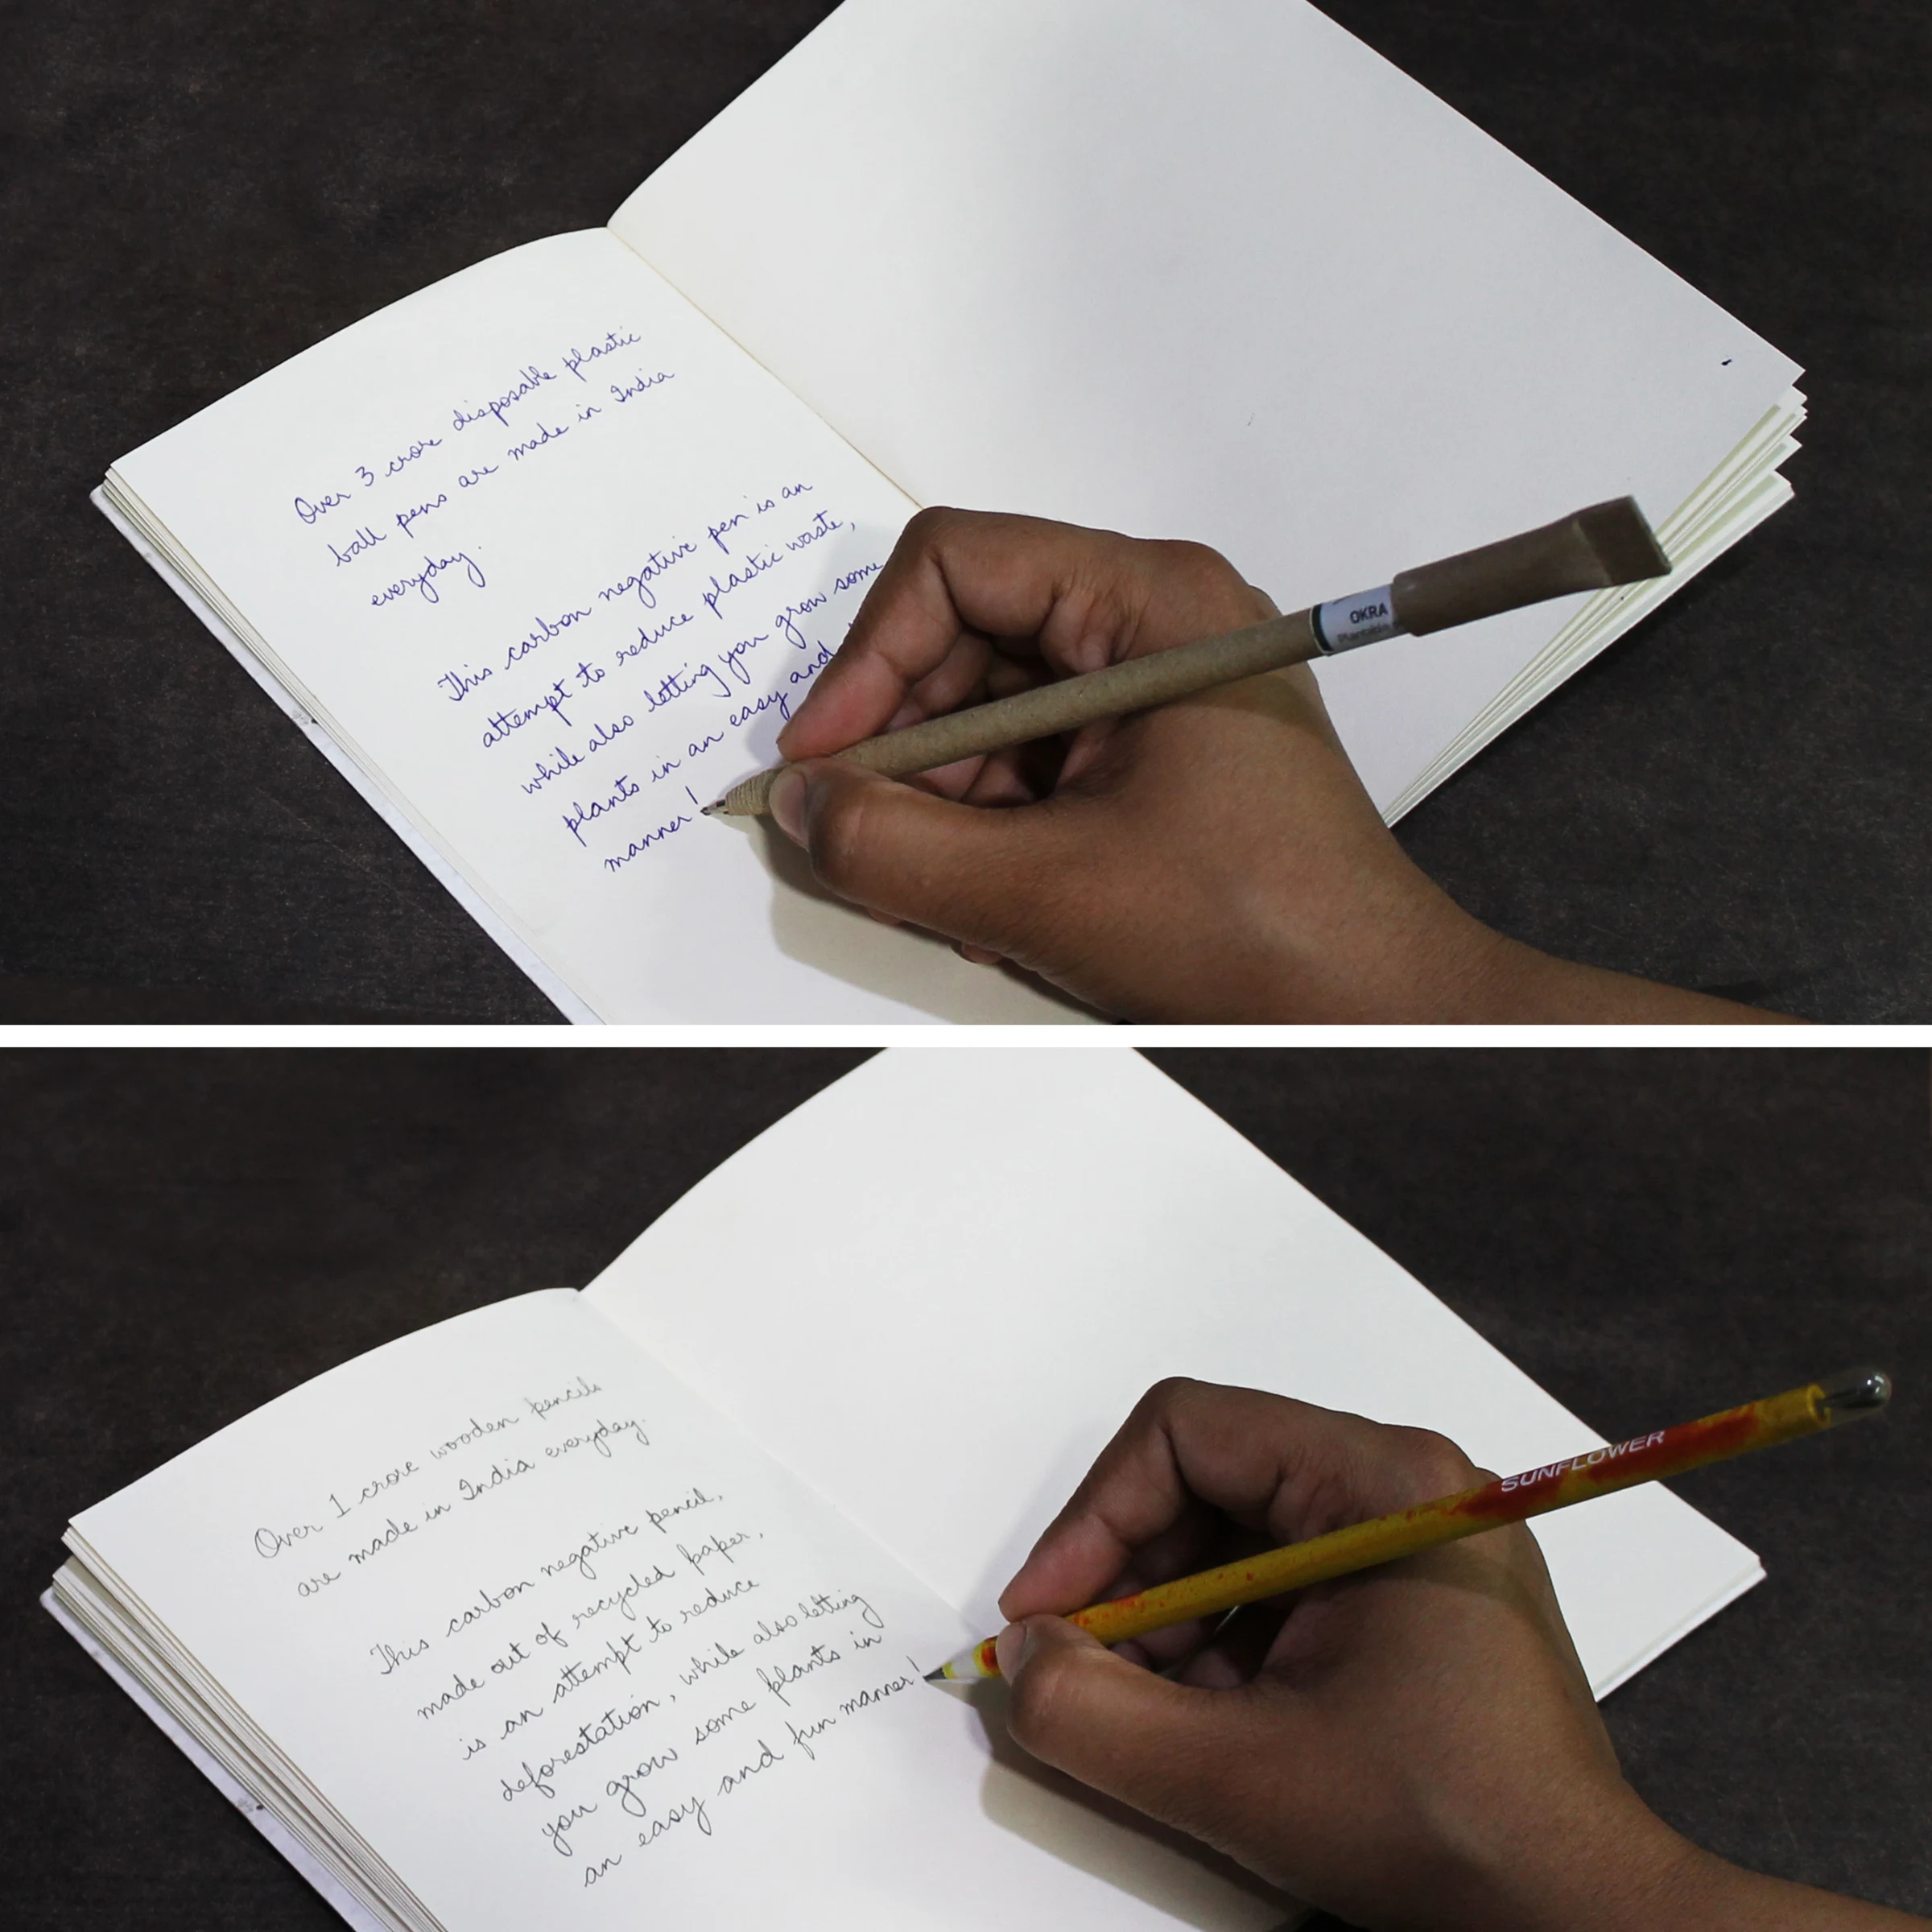 Over 3 crore disposable plastic
ball pens are made in India
everyday.
This carbon negative pen is an
attempt to reduce plastic waste,
while also letting you grow some
plants in an easy and
manner!
OKRA
Plantable
Over 1 crore wooden pencils
are made in India everyday.
This carbon negative pencil,
made out of recycled paper,
is an attempt to reduce
deforestation, while also letting
you grow some plants in
an easy and fun manner!
SUNFLOWER